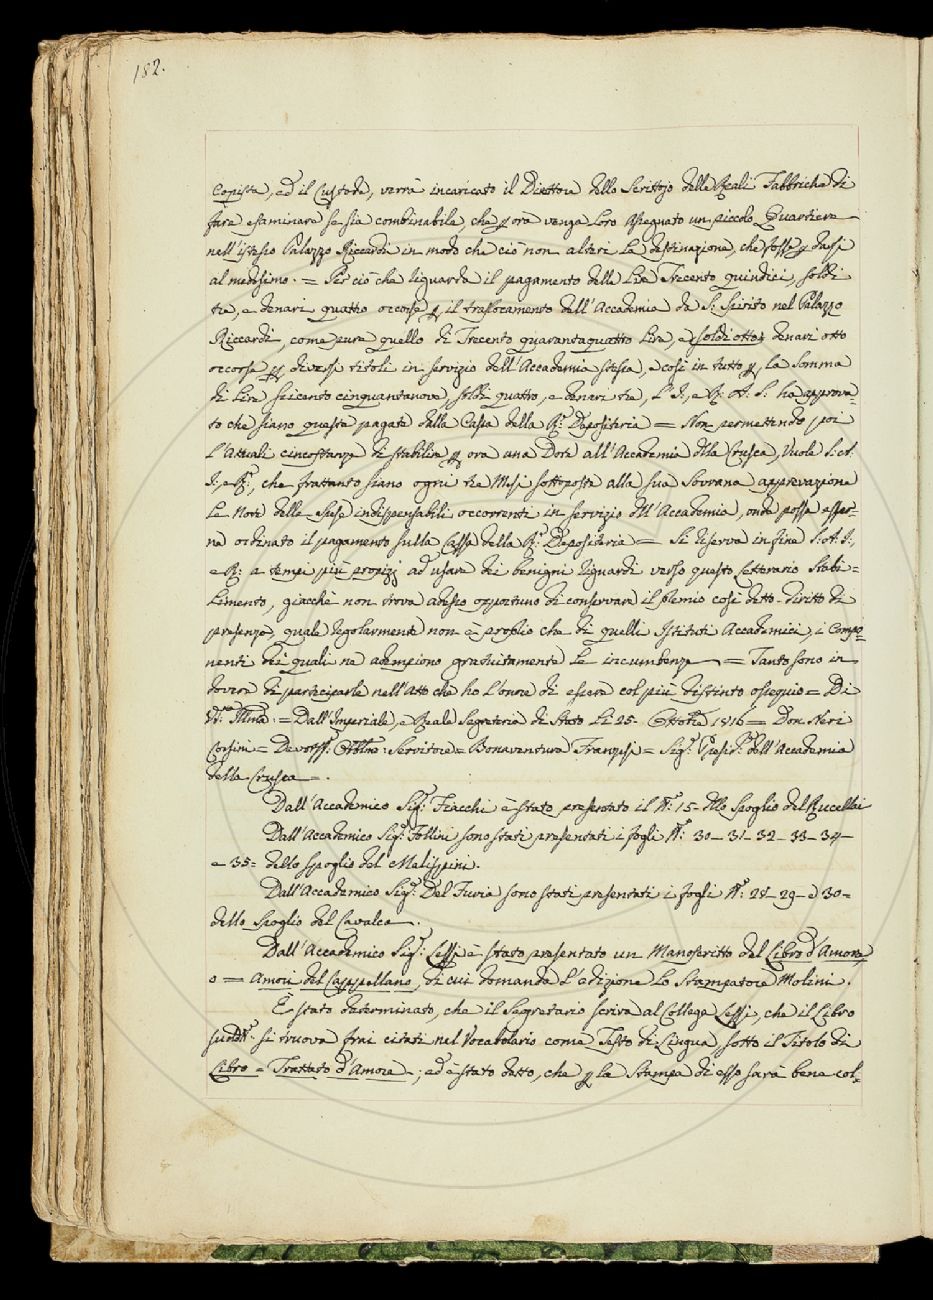 182.
Copista, ed il Custode, verrà incaricato il Direttore dello Scrittojo delle Reali Fabbriche di
fare esaminare se sia combinabile, che p ora venga Loro assegnato un piccolo Quartiere
nell'istesso Palazzo Riccardi in modo che ciò non alteri La destinazione, che fosse p darsi
al medesimo. = Per ciò che riguarda il pagamento delle Lire Trecento quindici, soldi
tre, e denari quattro occorse p il traslocamento dell'Accademia da S. Spirito nel Palazzo
Riccardi, come pure quello di Trecento quarantaquattro Lire, e soldi otto, denari otto
occorse p diversi titoli in servizio dell'Accademia stessa, e così in tutto p La Somma
di Lire seicento cinquantanove, soldi quattro, e denari tre, L'I., e R. A. S. ha approva=
to che siano queste pagate dalla Cassa della R. Depositeria = Non permettendo poi
L'attuali circostanze di stabilire p ora una Dote all'Accademia della Crusca, Vuole S. A.
I., e R., che frattanto siano ogni tre Mesi sottoposte alla sua Sovrana approvazione
Le Note delle Spese indispensabili occorrenti in servizio dell'Accademia, onde possa esser=
ne ordinato il pagamento sulla Cassa della R. Depositeria = Si riserva in fine S. A. I.,
e R. a tempi più propizj ad usare dei benigni riguardi verso questo Letterario Stabi=
Limento, giacchè non trova adesso opportuno di conservare il premio così detto diritto di
presenze, quale regolarmente non è proprio che di quelli Istituti Accademici, i Compo=
nenti dei quali ne adempiono gratuitamente Le incumbenze = Tanto sono in
dovere di parteciparle nell'atto che ho L'onore di essere col più distinto ossequio = Di
V.S. Illma = Dall'Imperiale, e Reale Segreteria di Stato Li 25. Ottobre 1816 = Don Neri
Corsini = Devotss. Obblmo Servitore = Bonaventura Franzesi = Sig. Presid. dell'Accademia
della Crusca =.
Dall'Accademico Sig. Fiacchi è stato presentato il N. 15 dello Spoglio del Rucellai
Dall'Accademico Sig. Follini sono stati presentati i fogli N. 30 - 31 - 32 - 33 - 34 -
e 35 = dello Spoglio del Malispini.
Dall'Accademico Sig. Del Furia sono stati presentati i fogli N. 28 - 29 - e 30 =
dello Spoglio del Cavalca.
Dall'Accademico Sig. Lessi è stato presentato un Manoscritto del Libro d'Amore,
o = Amori del Cappellano, di cui domanda L'edizione Lo Stampatore Molini.
È stato determinato, che il Segretario scriva al Collega Lessi, che il Libro
sudd. si truova frai citati nel Vocabolario come Testo di Lingua, sotto il Titolo di
Libro = Trattato d'Amore =; ed è stato detto, che p la Stampa di esso sarà bene col=